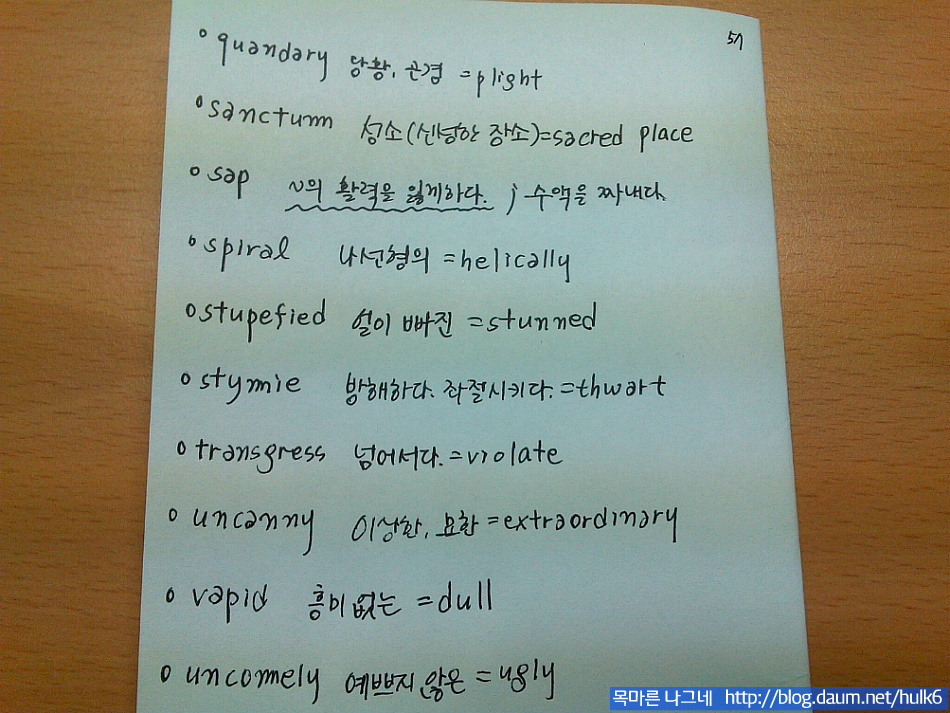 57
• quandary 당황, 곤경 =plight
• sanctum 성소(신성한 장소)=sacred place
• sap ~의 활력을 잃게하다. ; 수액을 짜내다.
• spiral 나선형의 =helically
• stupefied 얼이 빠진 =stunned
• stymie 방해하다. 좌절시키다. =thwart
• transgress 넘어서다. =violate
• uncanny 이상한, 묘한 =extraordinary
• vapid 흥미 없는 =dull
• uncomely 예쁘지 않은 =ugly
목마른 나그네 http://blog.daum.net/hulk6